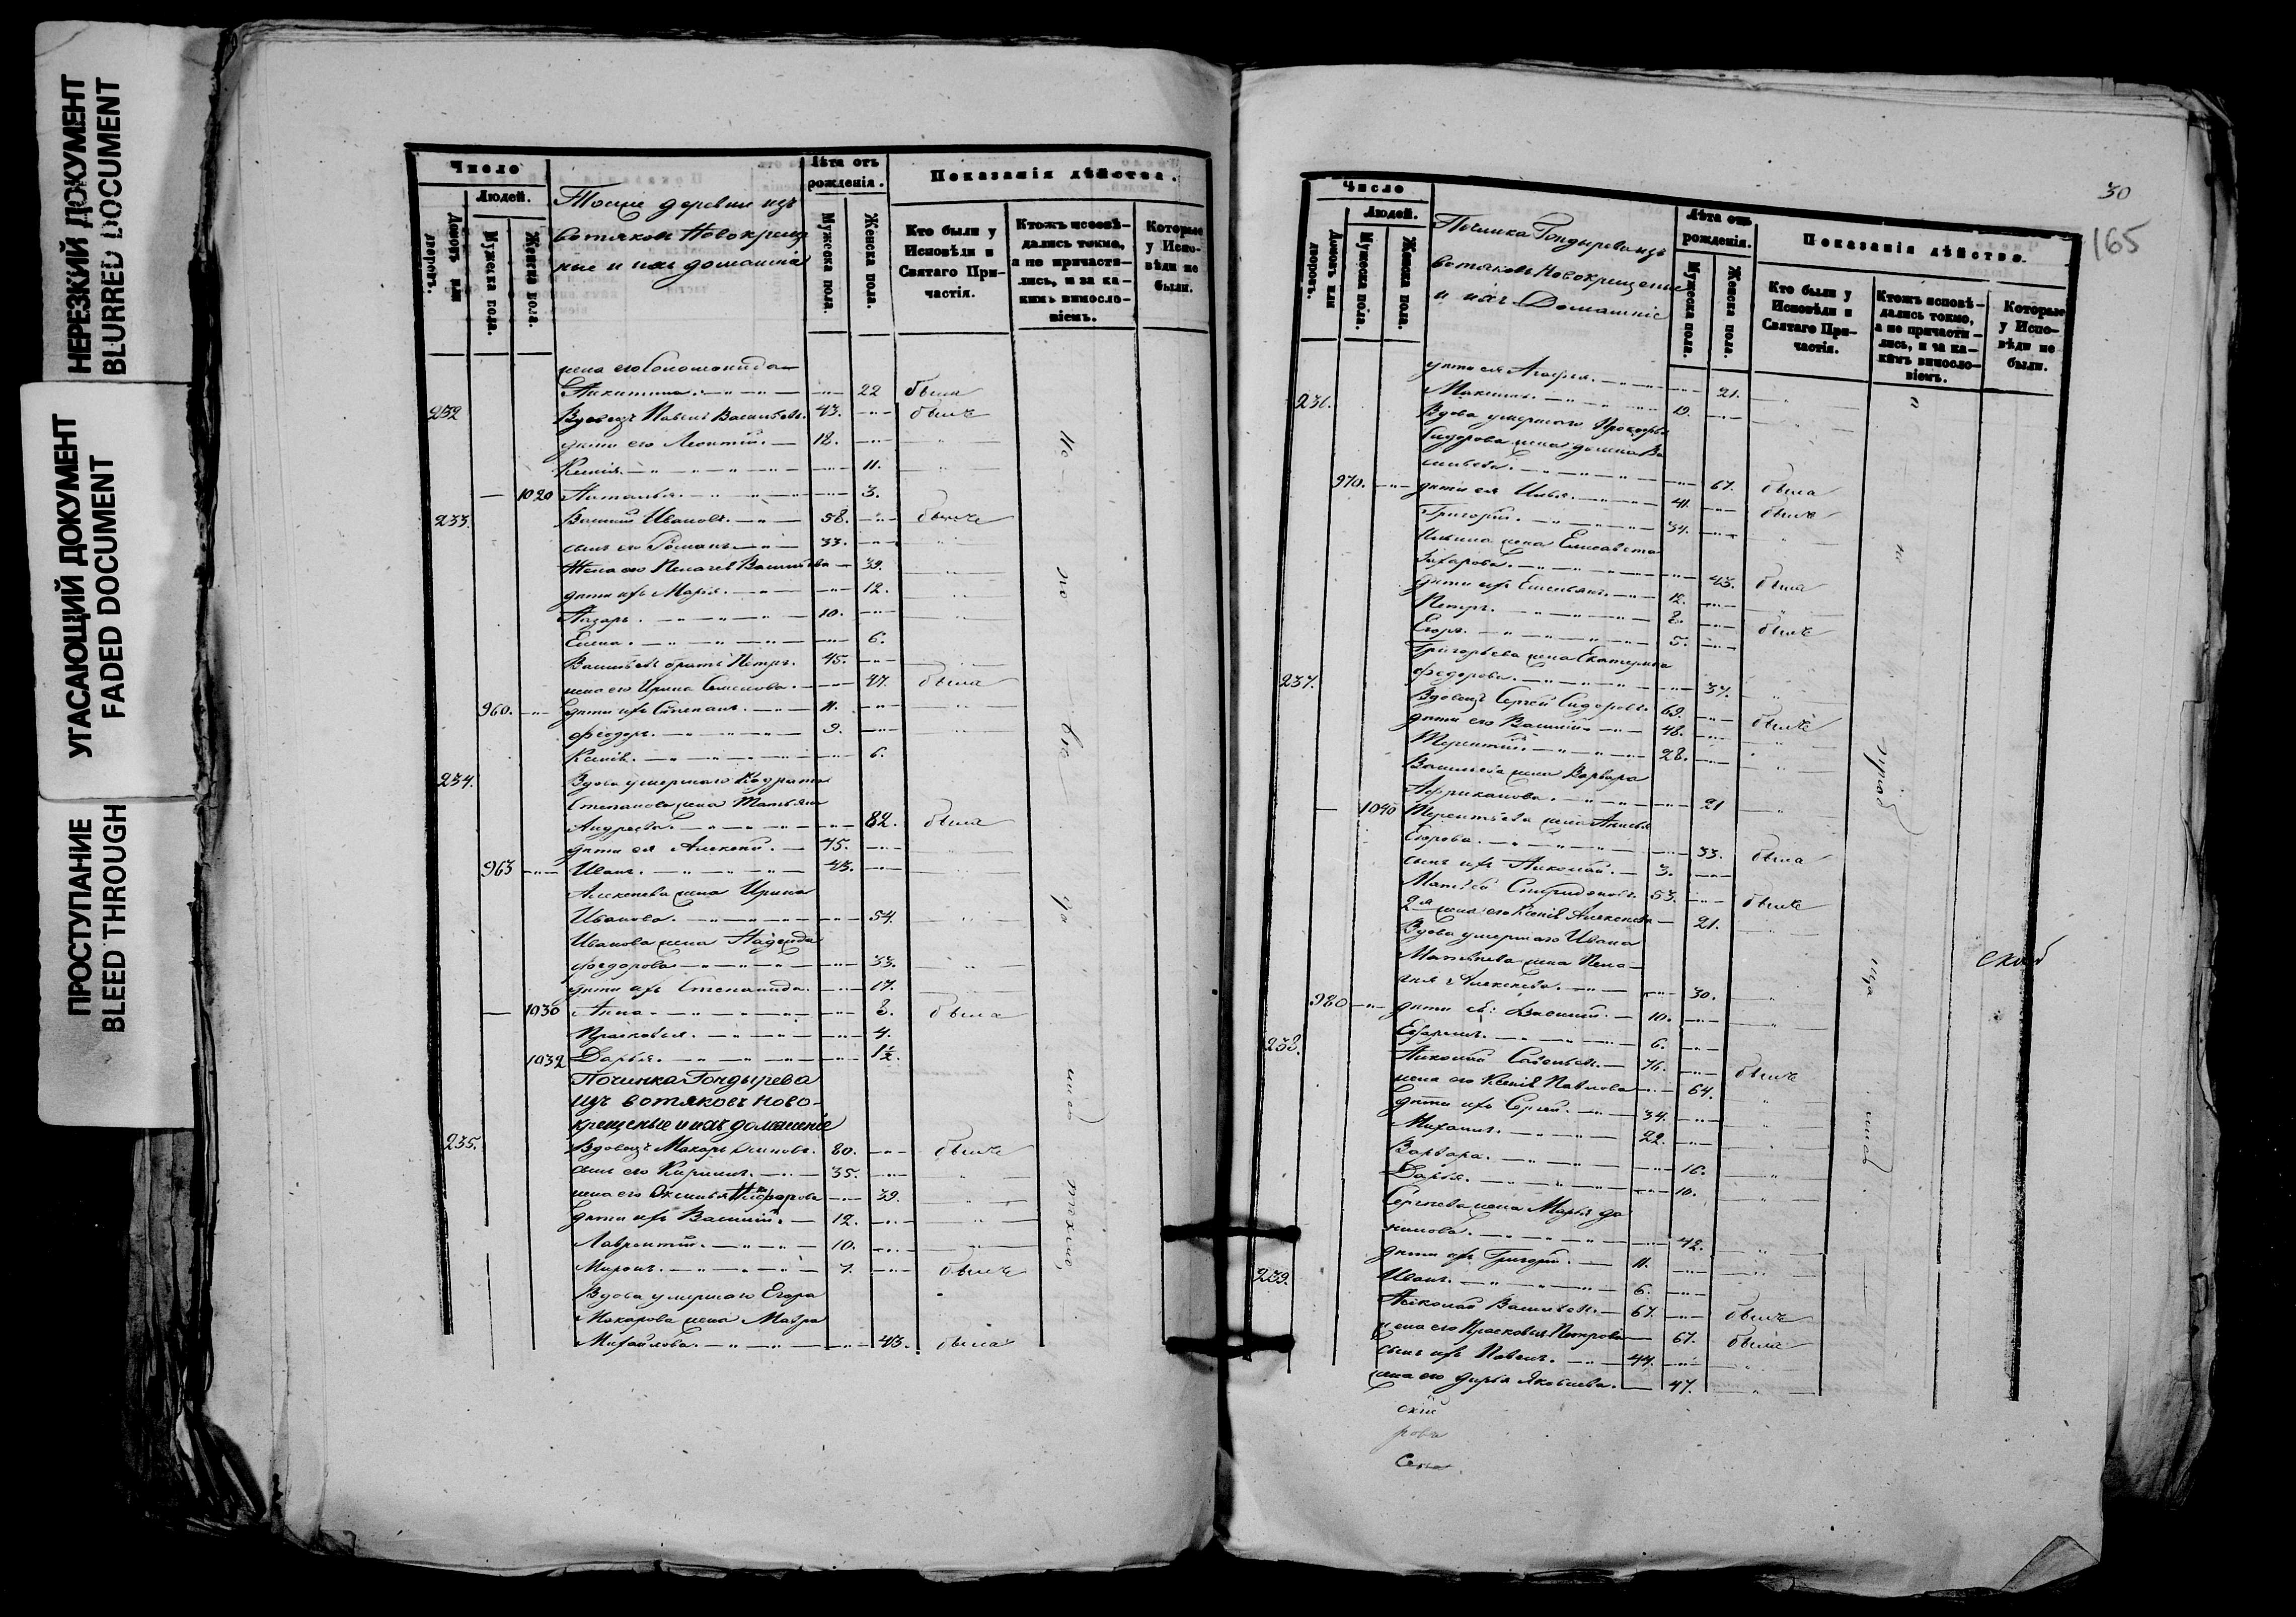 НЕРЕЗКИЙ ДОКУМЕНТ
BLURRED DOCUMENT
УГАСАЮЩИЙ ДОКУМЕНТ
FADED DOCUMENT
ПРОСТУПАНИЕ
BLEED THROUGH
Число
Людей.
Домовъ или дворовъ.
Мужеска пола.
Женска пола.
Тоиже деревни изъ
вотяковъ Новокрещен
ные и ихъ домашніе
Лѣта отъ рожденія.
Мужеска пола.
Женска пола.
Показанія дѣйства.
Кто были у Исповѣди и Святаго При-
частія.
Ктожъ исповѣ-
дались токмо,
а не причасти-
лись, и за ка-
кимъ виносло-
віемъ.
Которые
у Испо-
вѣди не
были.
жена его Соломонида
Никитина. 22 была
232 Вдовецъ Павелъ Васильевъ. 43. былъ
дѣти его Леонтій. 12.
Ксенія 11.
1020 Наталья. 3.
233. Василій Ивановъ. 58. былъ
сынъ его Романъ 33.
Жена его Пелагея Васильева 39.
дѣти ихъ Марія. 12.
Назаръ. 10.
Елена. 6.
Васильевъ братъ Петръ. 45.
жена его Ирина Семенова. 47. была
960. дѣти ихъ Степанъ. 11.
Феодоръ. 9.
Ксенія. 6.
234. Вдова умершаго Кодрата
Степанова жена Татьяна
Андреева. 82. была
дѣти ея Алексѣй. 45.
963 Иванъ. 43.
Алексѣева жена Ирина
Иванова. 54.
Иванова жена Надежда
Феодорова 33.
дѣти ихъ Степанида. 17.
1030 Анна. 8. была
Прасковья. 4.
1032 Дарья. 1½.
Починка Гондырева
изъ вотяковъ ново-
крещеные и ихъ домашніе
235. Вдовецъ Макаръ Осиповъ. 80. былъ
сынъ его Кирилъ. 35.
жена его Оксинья Никифорова 39.
дѣти ихъ Василій. 12.
Лаврентій. 10.
Миронъ. 7. былъ
Вдова умершаго Егора
Макарова жена Мавра
Михайлова. 43. была
30
165
Число
Людей.
Домовъ или дворовъ.
Мужеска пола.
Женска пола.
Починка Гондырева изъ
вотяковъ Новокрещеные
и ихъ Домашніе
Лѣта отъ рожденія.
Мужеска пола.
Женска пола.
Показанія дѣйства.
Кто были у Исповѣди и Святаго При-
частія.
Ктожъ исповѣ-
дались токмо,
а не причасти-
лись, и за ка-
кимъ виносло-
віемъ.
Которые
у Испо-
вѣди не
были.
дѣти ея Агафья. 21.
Максимъ. 19.
236. Вдова умершаго Прокофья
Сидорова жена Домна Ва
сильева. 67. была
970. дѣти ея Илья. 41. былъ
Григорій. 34.
Ильина жена Елисавета
Захарова. 43. была
дѣти ихъ Емельянъ. 12.
Петръ. 8. былъ
Егоръ. 5.
Григорьева жена Екатерина
Федорова. 37.
237. Вдовецъ Сергѣй Сидоровъ. 69. былъ
дѣти его Василій 48.
Терентій. 28.
Васильева жена Варвара
Африканова. 21
1040 Терентьева жена Анисья
Егорова. 33. была
сынъ ихъ Николай. 3.
Матвѣй Спиридоновъ. 53. былъ
2я жена его Ксенія Алексѣева 21.
Вдова умершаго Ивана
Матвѣева жена Пела-
гея Алексѣева. 30.
980 дѣти её: Василій. 10.
Ефремъ. 6.
238. Николай Савельевъ. 76. былъ
жена его Ксенія Павлова 64.
дѣти ихъ Сергѣй. 34.
Михаилъ. 22.
Варвара. 16.
Дарья. 10.
Сергѣева жена Марья Да
нилова. 42.
дѣти ихъ Григорій. 11.
Иванъ. 6.
239. Николай Васильевъ. 67. былъ
жена его Прасковья Петрова 67. была
сынъ ихъ Павелъ. 44.
жена его Дарья Яковлева. 47.
скій
рова